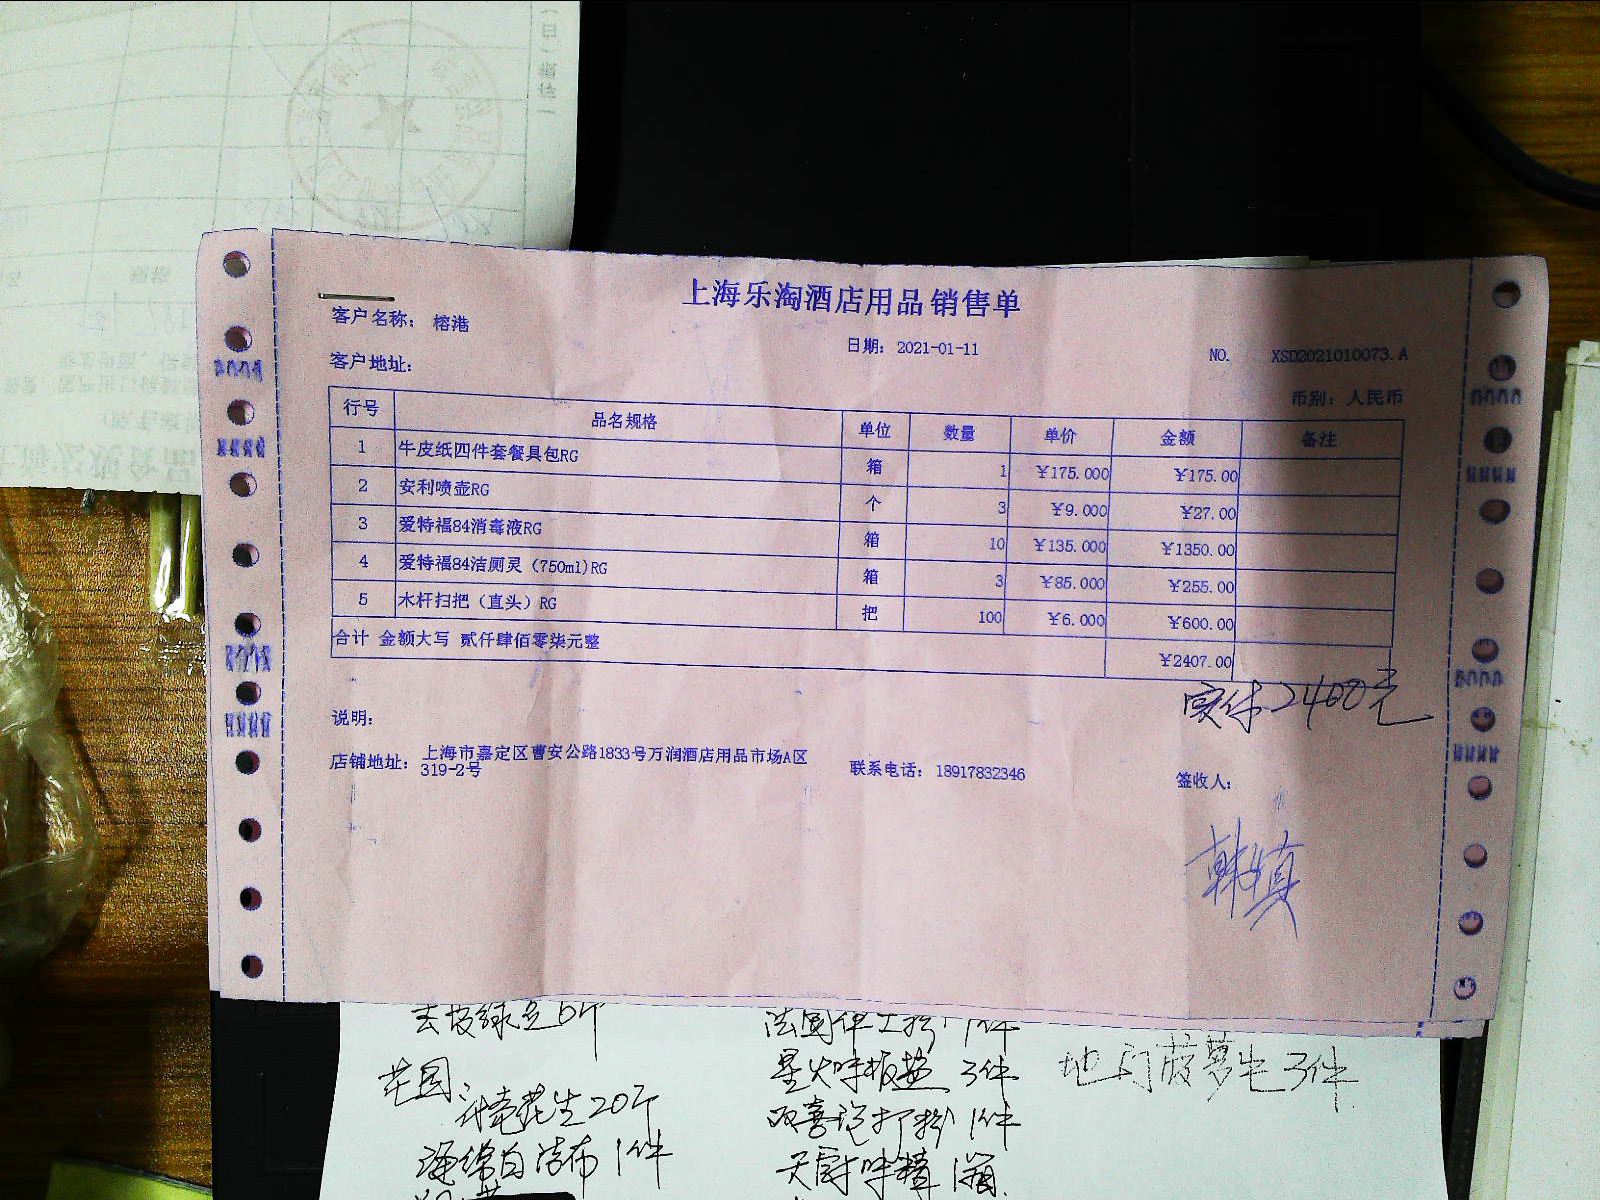 上海乐淘酒店用品销售单
客户名称： 榕港
日期： 2021-01-11
NO. XSD2021010073.A
客户地址：
币别：人民币
行号 品名规格 单位 数量 单价 金额 备注
1 牛皮纸四件套餐具包RG 箱 1 ¥175.000 ¥175.00
2 安利喷壶RG 个 3 ¥9.000 ¥27.00
3 爱特福84消毒液RG 箱 10 ¥135.000 ¥1350.00
4 爱特福84洁厕灵（750ml)RG 箱 3 ¥85.000 ¥255.00
5 木杆扫把（直头）RG 把 100 ¥6.000 ¥600.00
合计 金额大写 贰仟肆佰零柒元整 ¥2407.00
实付2400元
说明：
店铺地址： 上海市嘉定区曹安公路1833号万润酒店用品市场A区
319-2号
联系电话：18917832346
签收人：
韩慎
去皮绿豆6斤
花园
花生20斤
海绵白洁布1件
3件
双喜泡打粉1件
天厨味精1箱
地门菠萝 3件